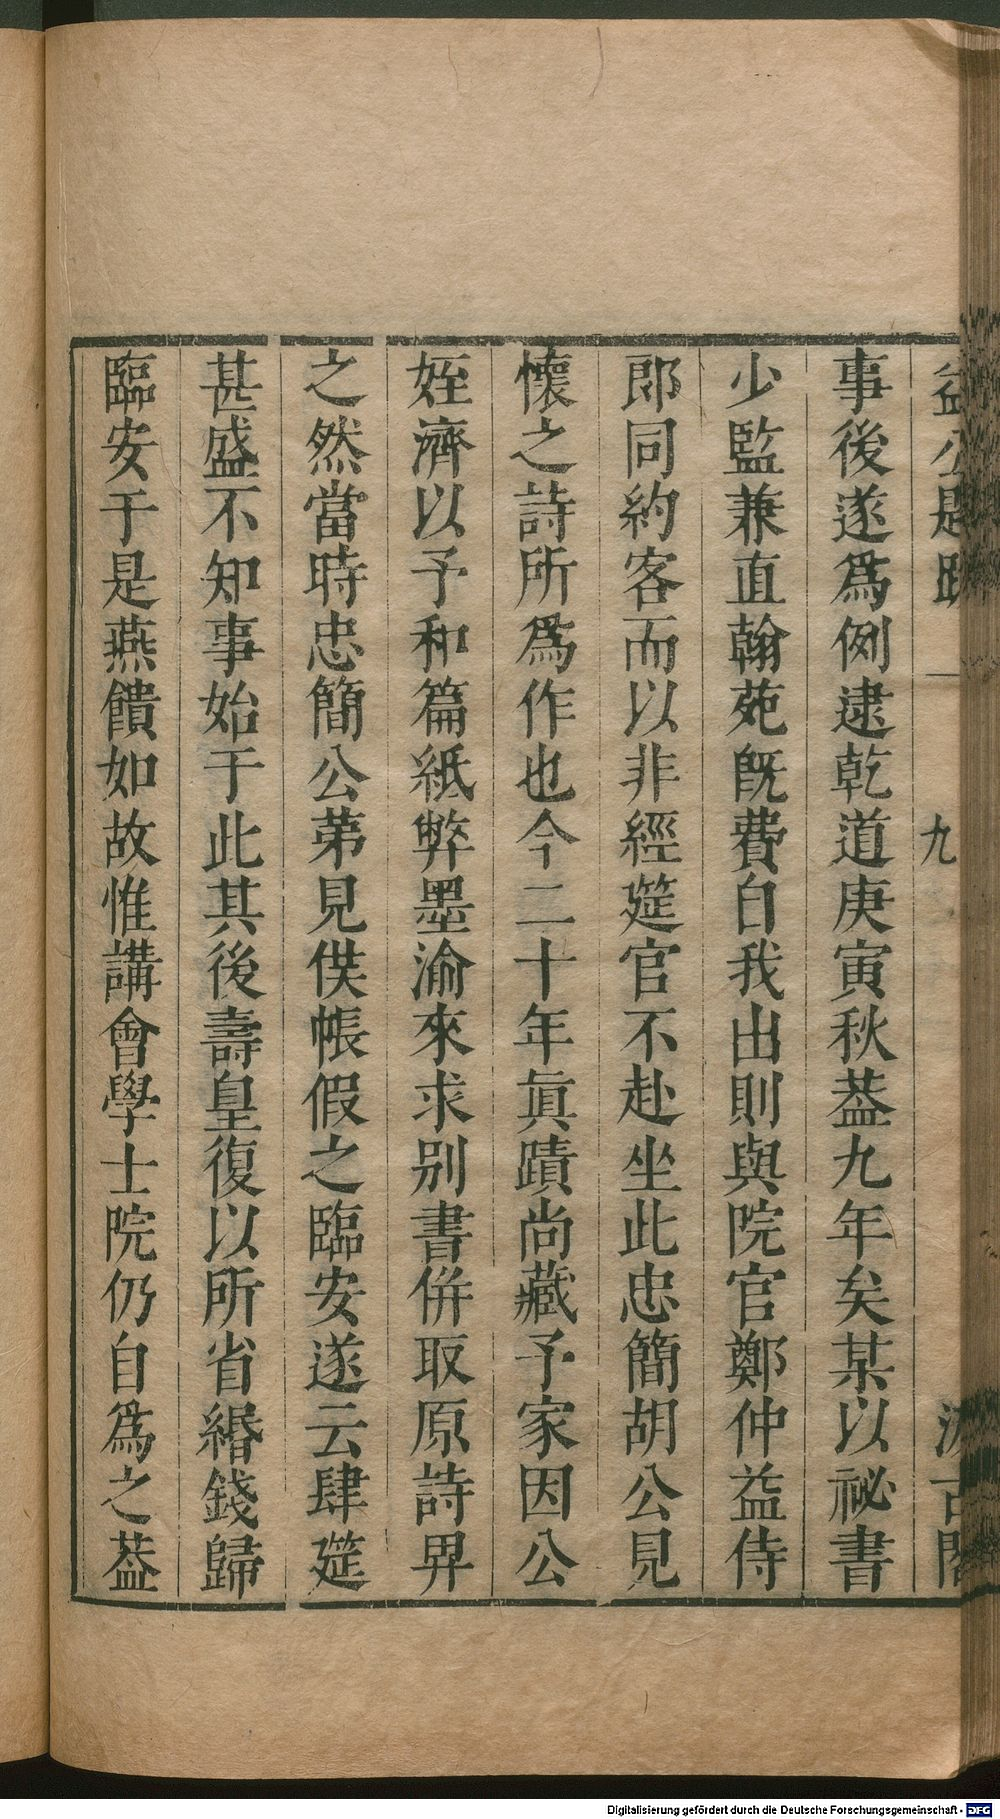 益公題跋 一 九 汲古閣
事後遂爲例逮乾道庚寅秋葢九年矣某以祕書
少監兼直翰苑旣費白我出則與院官鄭仲益侍
郎同約客而以非經筵官不赴坐此忠簡胡公見
懷之詩所爲作也今二十年眞蹟尚藏予家因公
姪濟以予和篇紙弊墨渝來求别書併取原詩畀
之然當時忠簡公第見供帳假之臨安遂云肆筵
甚盛不知事始于此其後壽皇復以所省緡錢歸
臨安于是燕饋如故惟講會學士院仍自爲之葢
Digitalisierung gefördert durch die Deutsche Forschungsgemeinschaft - DFG